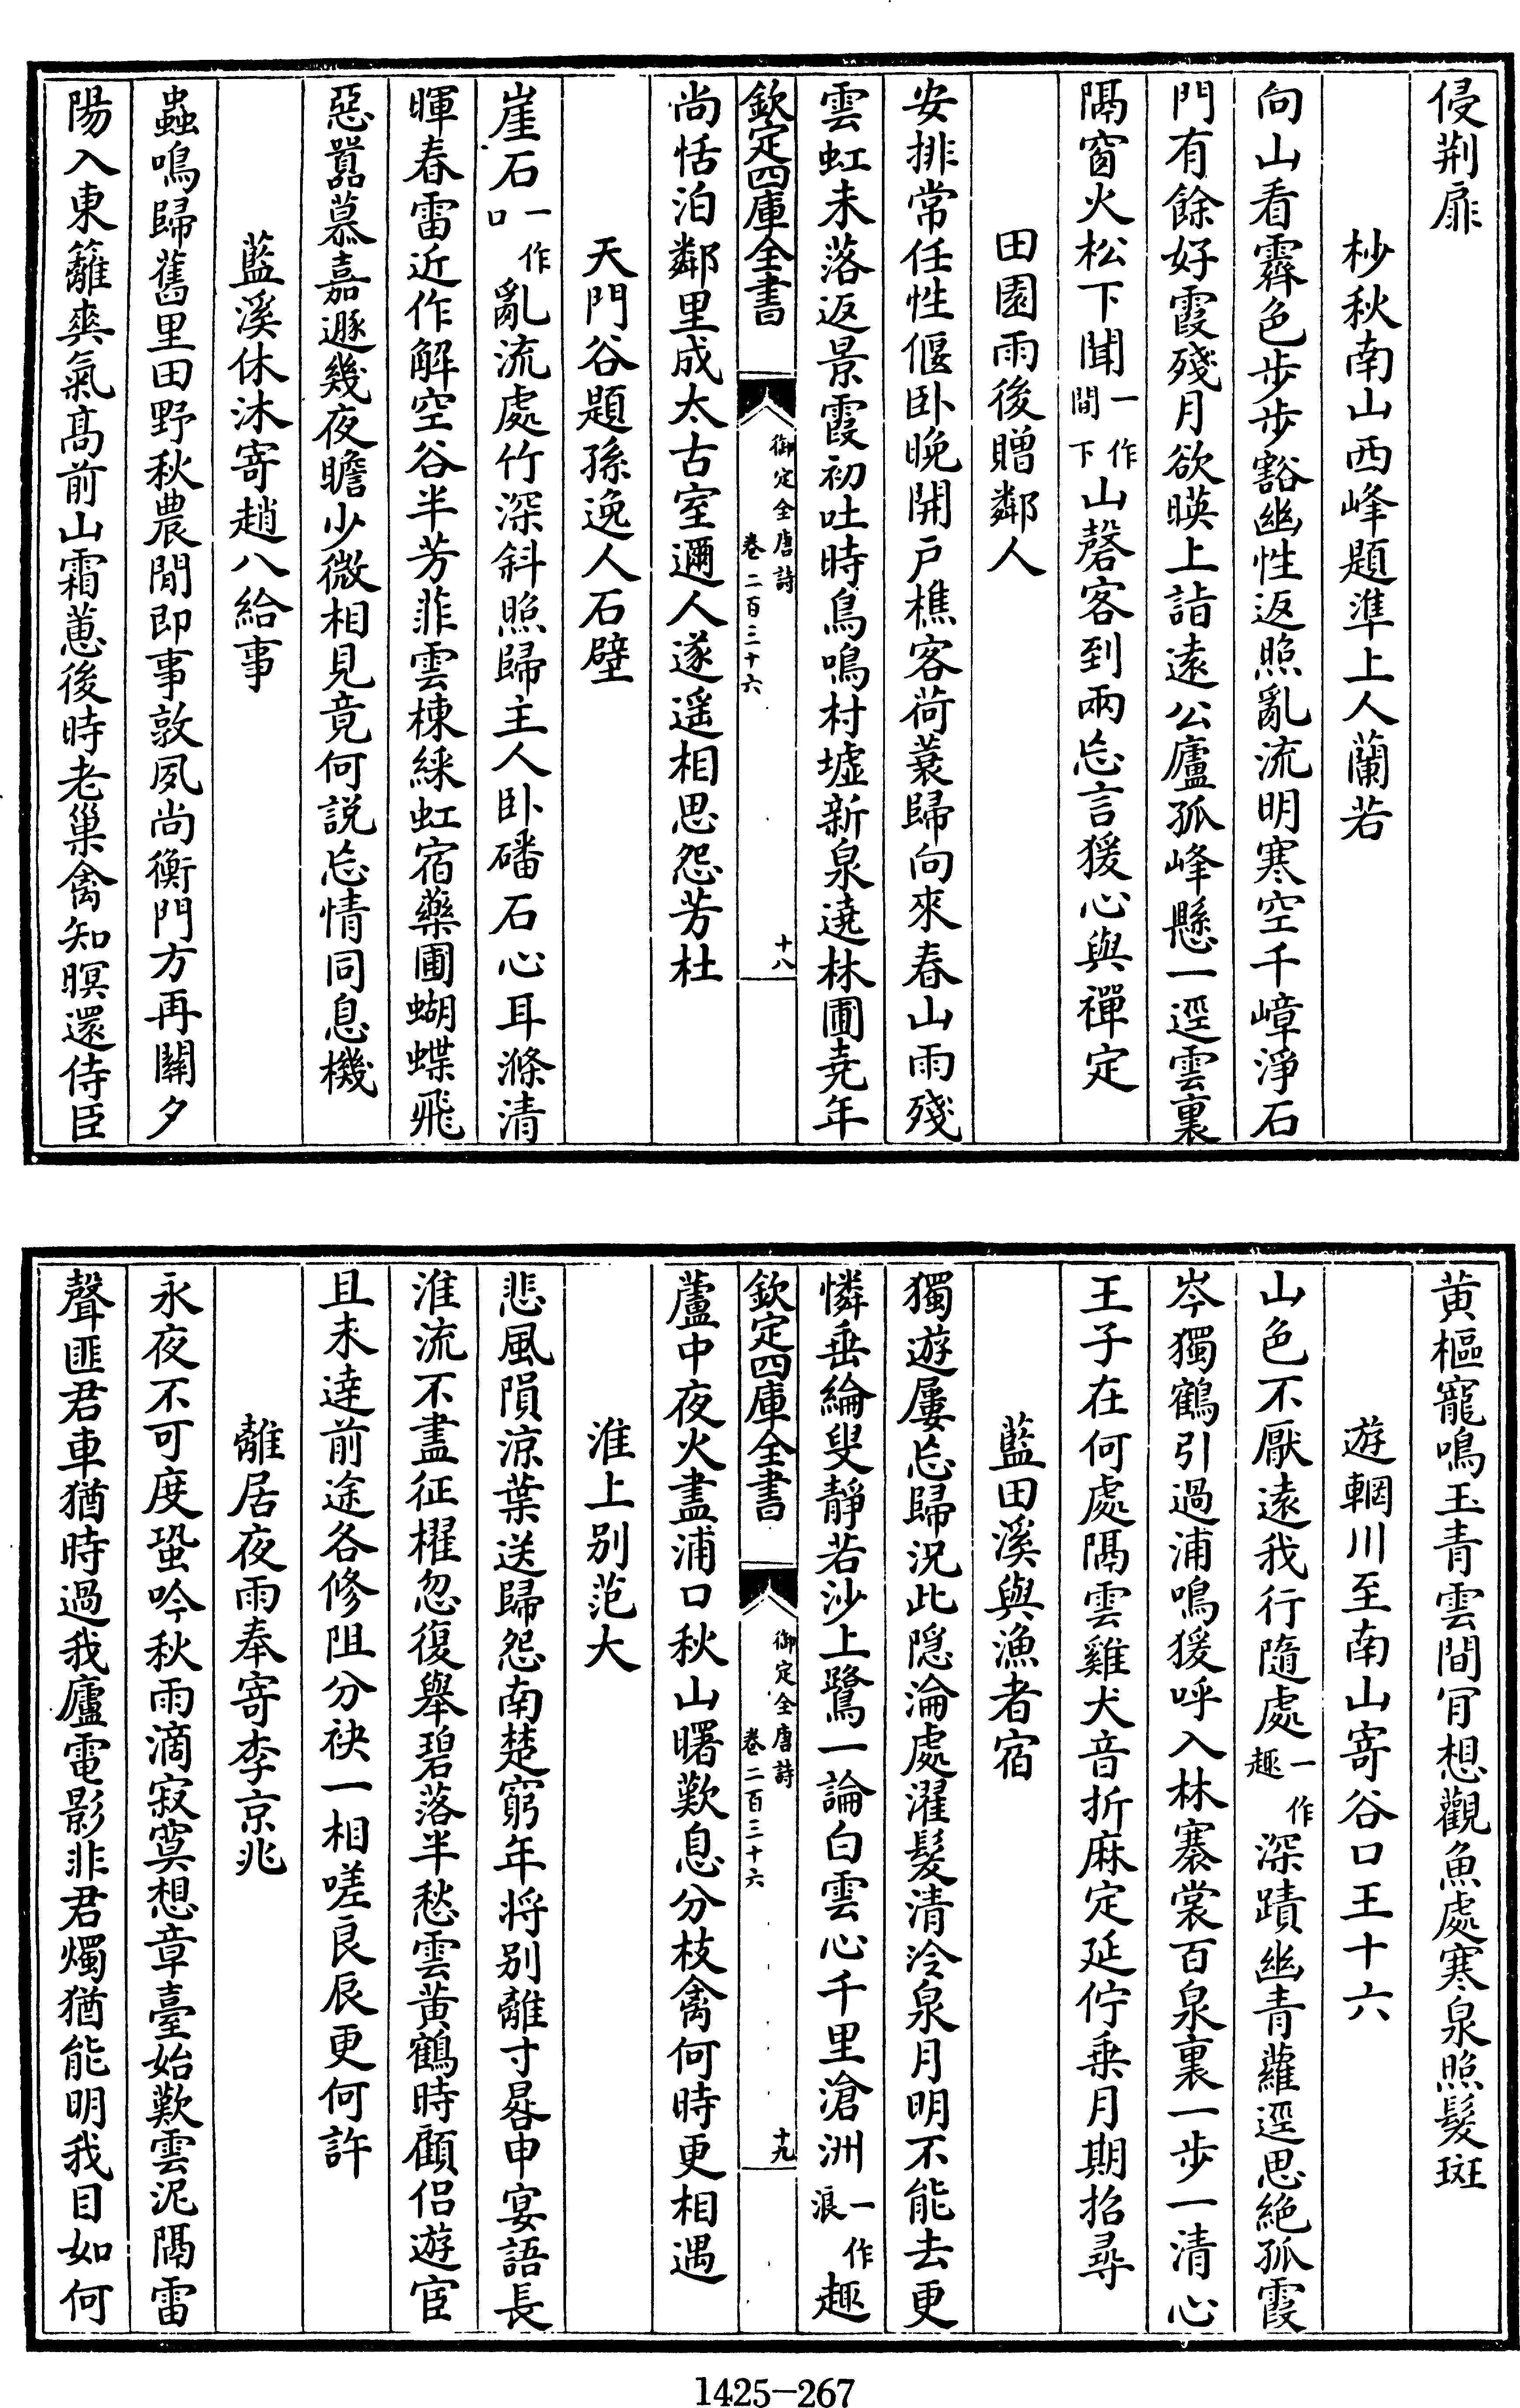 侵荆扉
杪秋南山西峰題準上人蘭若
向山看霽色步步豁幽性返照亂流明寒空千嶂淨石
門有餘好霞殘月欲暎上詣逺公廬孤峰懸一逕雲裏
隔窗火松下聞一作間下山磬客到兩忘言猨心與禪定
田園雨後贈鄰人
安排常任性偃卧晚開戸樵客荷蓑歸向來春山雨殘
雲虹未落返景霞初吐時鳥鳴村墟新泉遶林圃堯年
欽定四庫全書
御定全唐詩
卷二百三十六
十八
尚恬泊鄰里成太古室邇人遂遥相思怨芳杜
天門谷題孫逸人石壁
崖石一作口亂流處竹深斜照歸主人卧磻石心耳滌清
暉春雷近作解空谷半芳菲雲棟綵虹宿藥圃蝴蝶飛
惡囂慕嘉遯幾夜瞻少微相見竟何説忘情同息機
藍溪休沐寄趙八給事
蟲鳴歸舊里田野秋農閒即事敦夙尚衡門方再闗夕
陽入東籬爽氣髙前山霜蕙後時老巢禽知暝還侍臣
黄樞寵鳴玉青雲間肎想觀魚處寒泉照髮斑
遊輞川至南山寄谷口王十六
山色不厭逺我行隨處一作趣深蹟幽青蘿逕思絶孤霞
岑獨鶴引過浦鳴猨呼入林褰裳百泉裏一步一清心
王子在何處隔雲雞犬音折麻定延佇乗月期招尋
藍田溪與漁者宿
獨遊屢忘歸況此隠淪處濯髮清泠泉月明不能去更
憐垂綸叟静若沙上鷺一論白雲心千里滄洲一作浪趣
欽定四庫全書
御定全唐詩
卷二百三十六
十九
蘆中夜火盡浦口秋山曙歎息分枝禽何時更相遇
淮上别范大
悲風隕涼葉送歸怨南楚窮年将别離寸晷申宴語長
淮流不盡征櫂忽復舉碧落半愁雲黄鶴時顧侣遊宦
且未達前途各修阻分袂一相嗟良辰更何許
離居夜雨奉寄李京兆
永夜不可度蛩吟秋雨滴寂寞想章臺始歎雲泥隔雷
聲匪君車猶時過我廬電影非君燭猶能明我目如何
1425-267